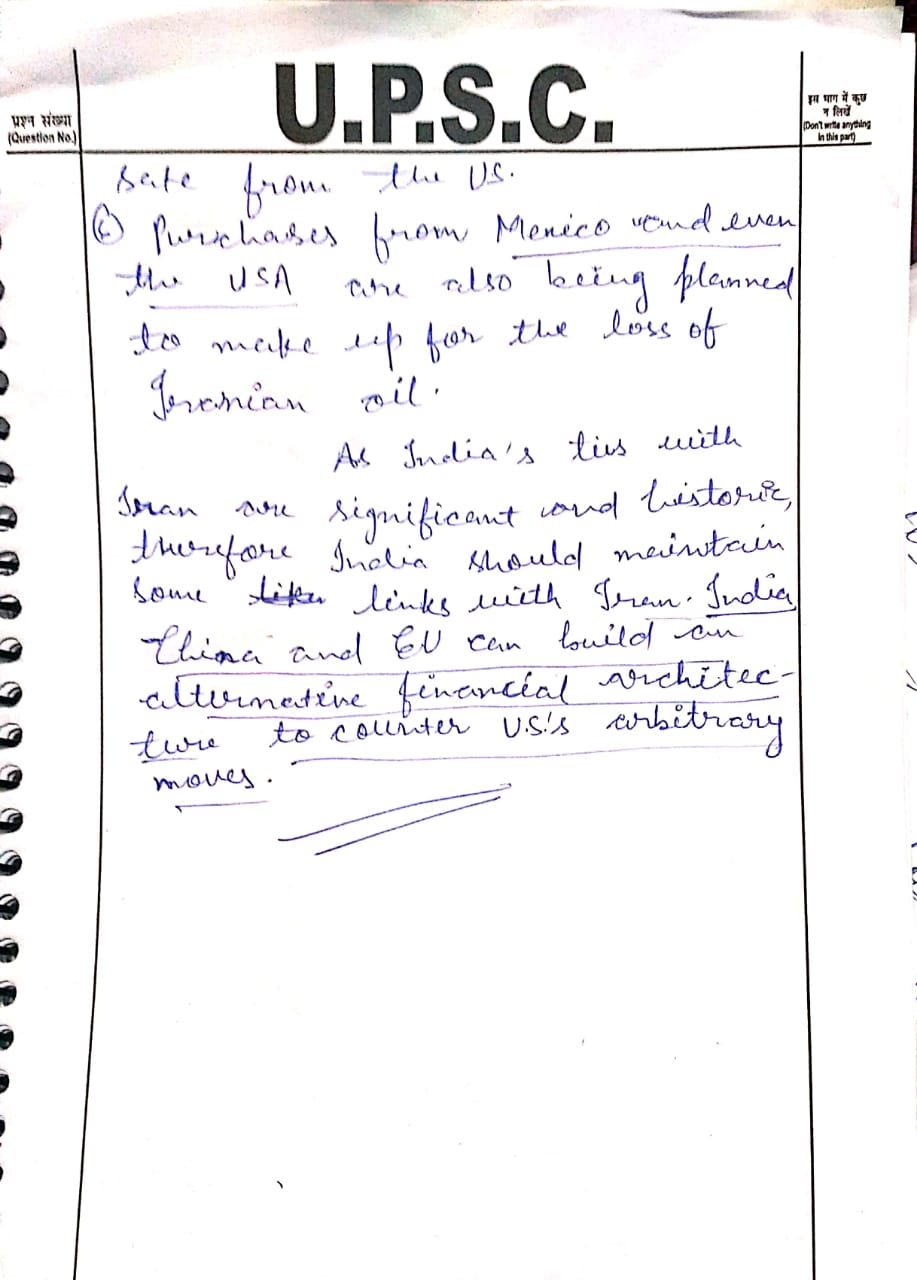 U.P.S.C.
प्रश्न संख्या
(Question No.)
इस भाग में कुछ
न लिखें
(Don't write anything
in this part)
safe from the US.
Purchases from Mexico and even
the USA are also being planned
to make up for the loss of
Iranian oil.
As India's ties with
Iran are significant and historic,
therefore India should maintain
some links with Iran. India,
China and EU can build an
alternative financial architec-
ture to counter U.S.'s arbitrary
moves.